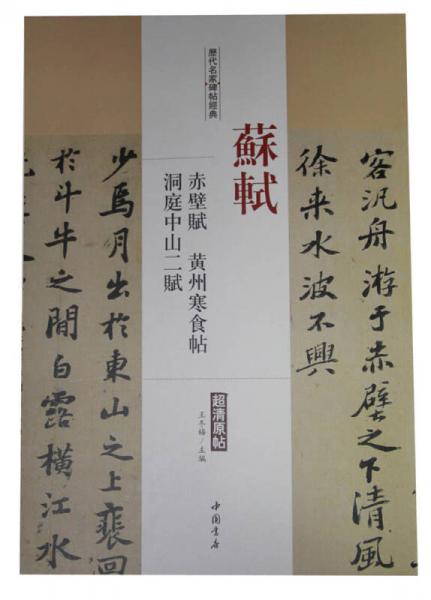 歷代名家碑帖經典
蘇軾
赤壁賦 黃州寒食帖
洞庭中山二賦
超清原帖
王冬梅/主編
中国書店
客汎舟游于赤壁之下清風
徐来水波不興
少焉月出於東山之上裵回
於斗牛之間白露橫江水